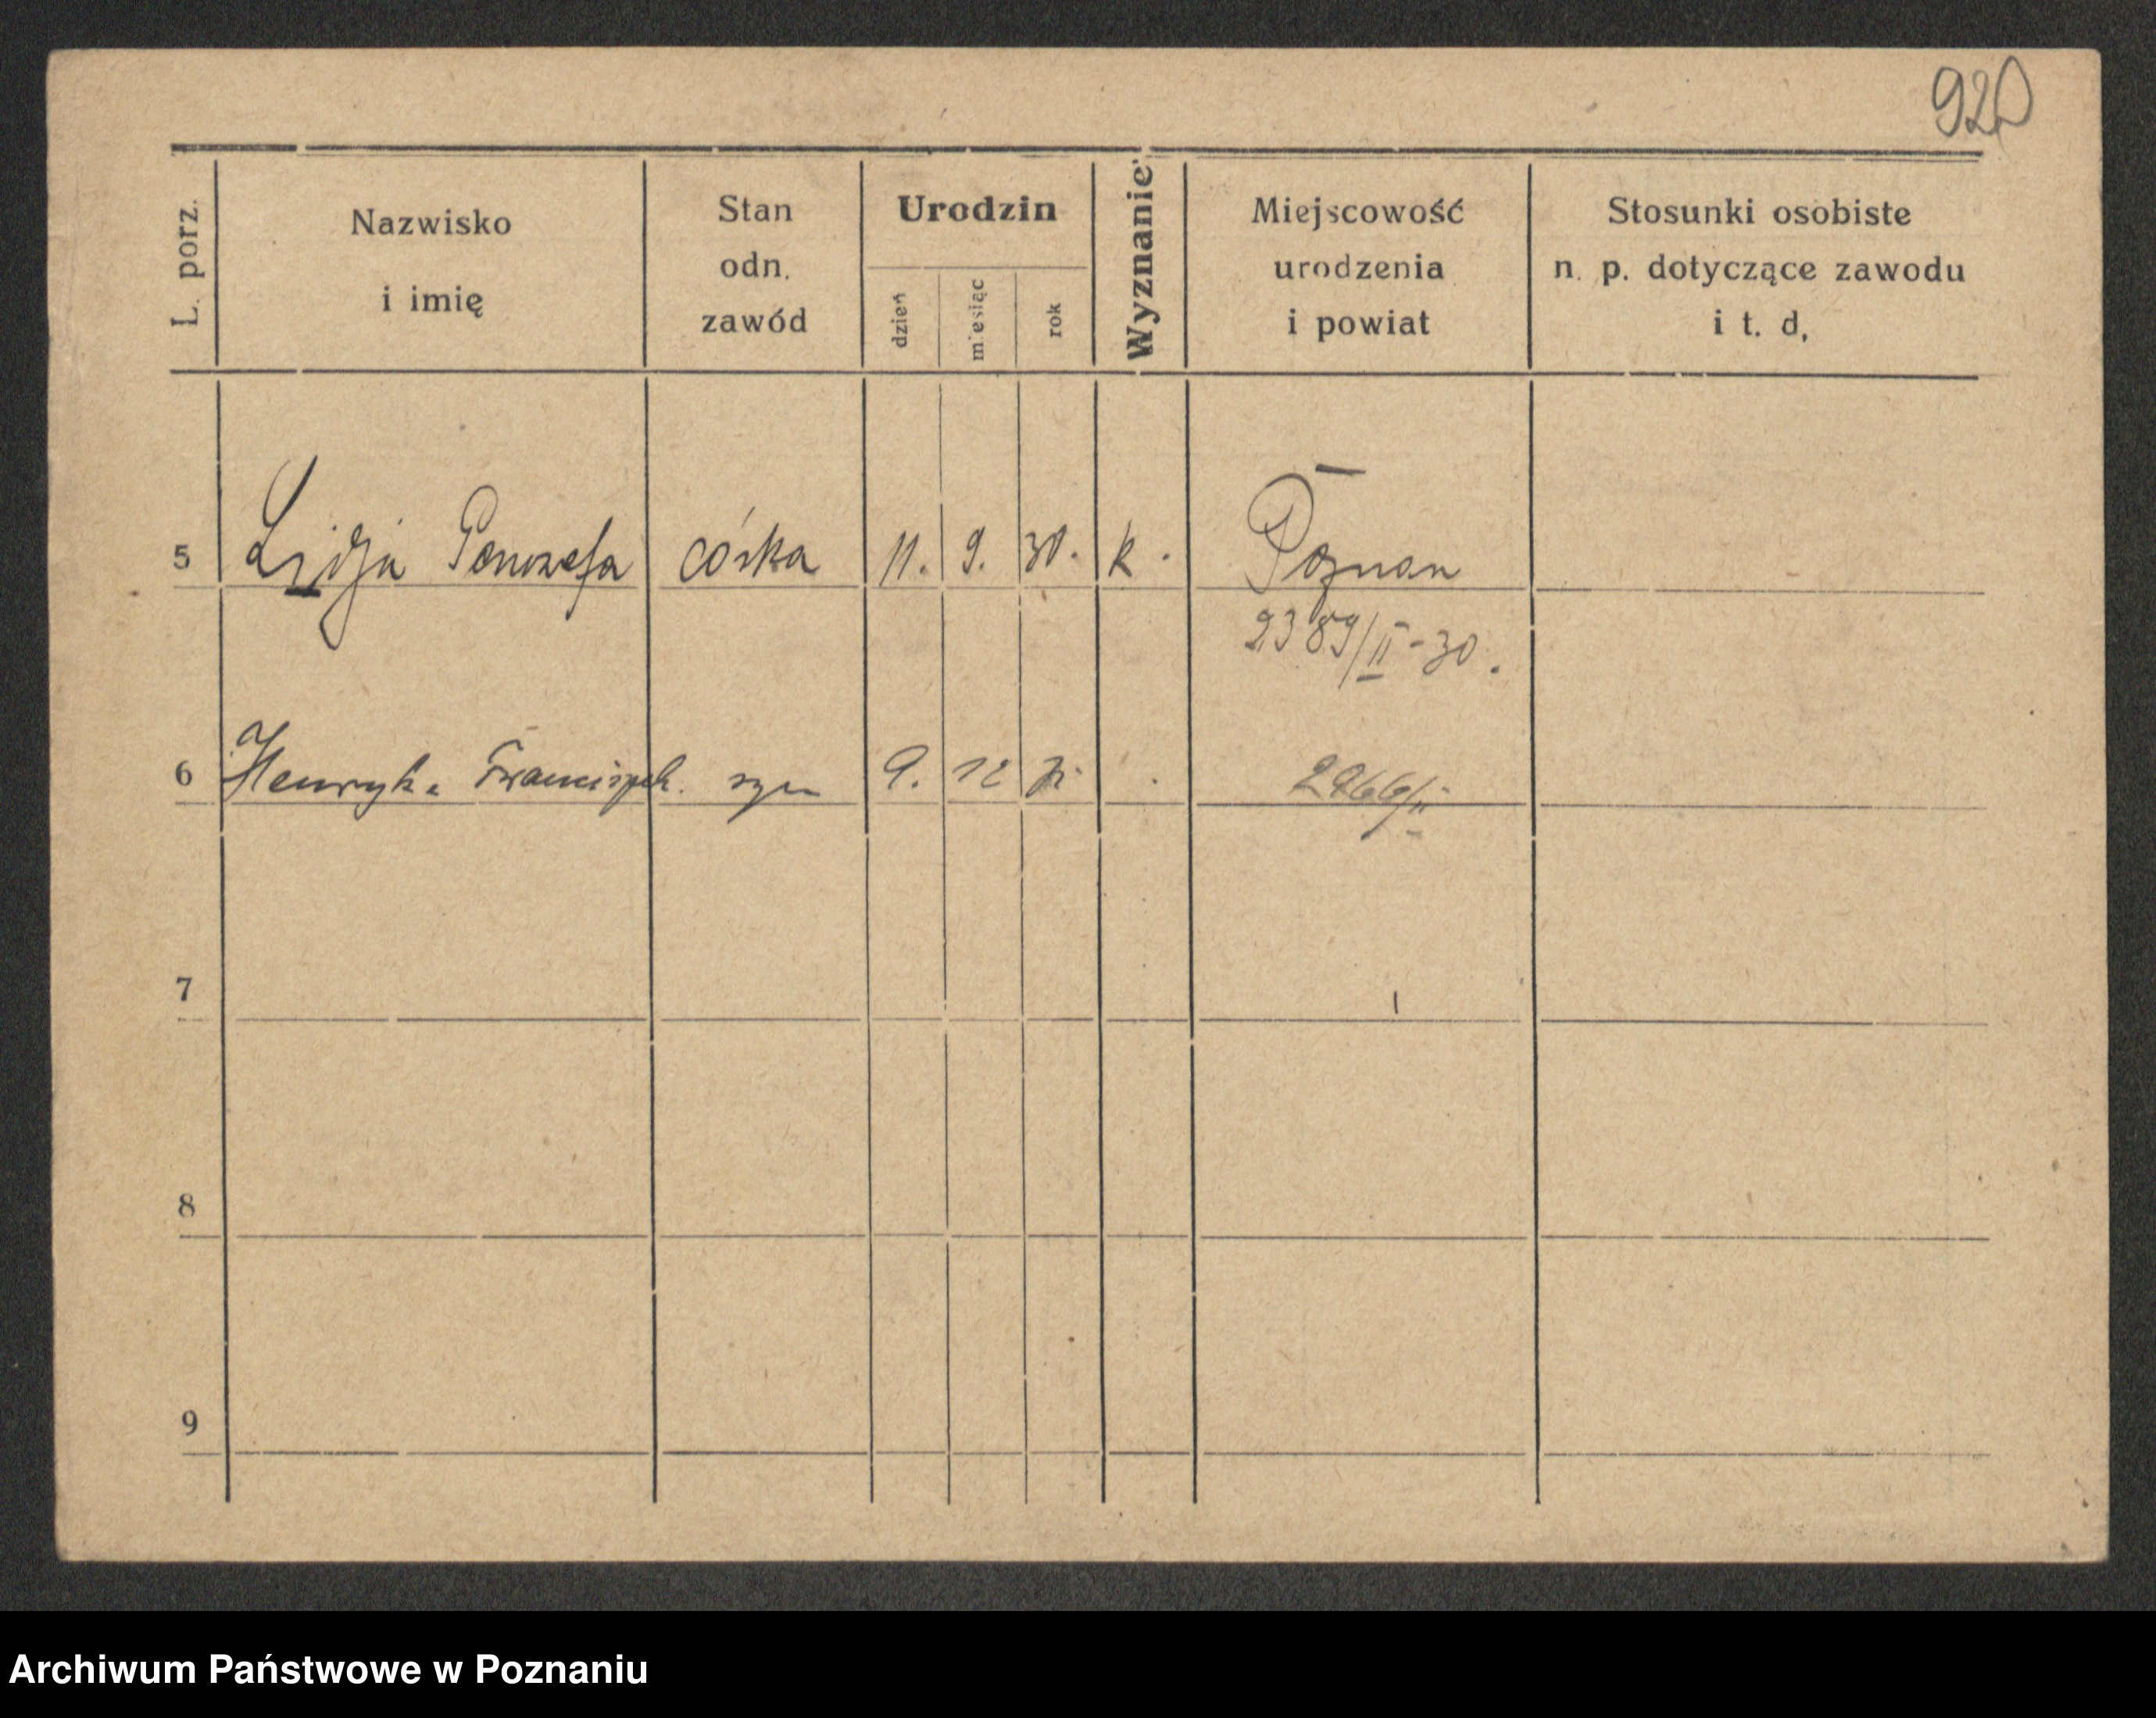 920
L. porz.
Nazwisko
i imię
Stan
odn.
zawód
Urodzin
dzień
miesiąc
rok
Wyznanie
Miejscowość
urodzenia
i powiat
Stosunki osobiste
n. p. dotyczące zawodu
i t. d.
5 Lidja córka 11. 9. 30. k. Poznan
2389/II-30.
6 Henryk Franciszek. syn 9. 12 2466/II
7
8
9
Archiwum Państwowe w Poznaniu